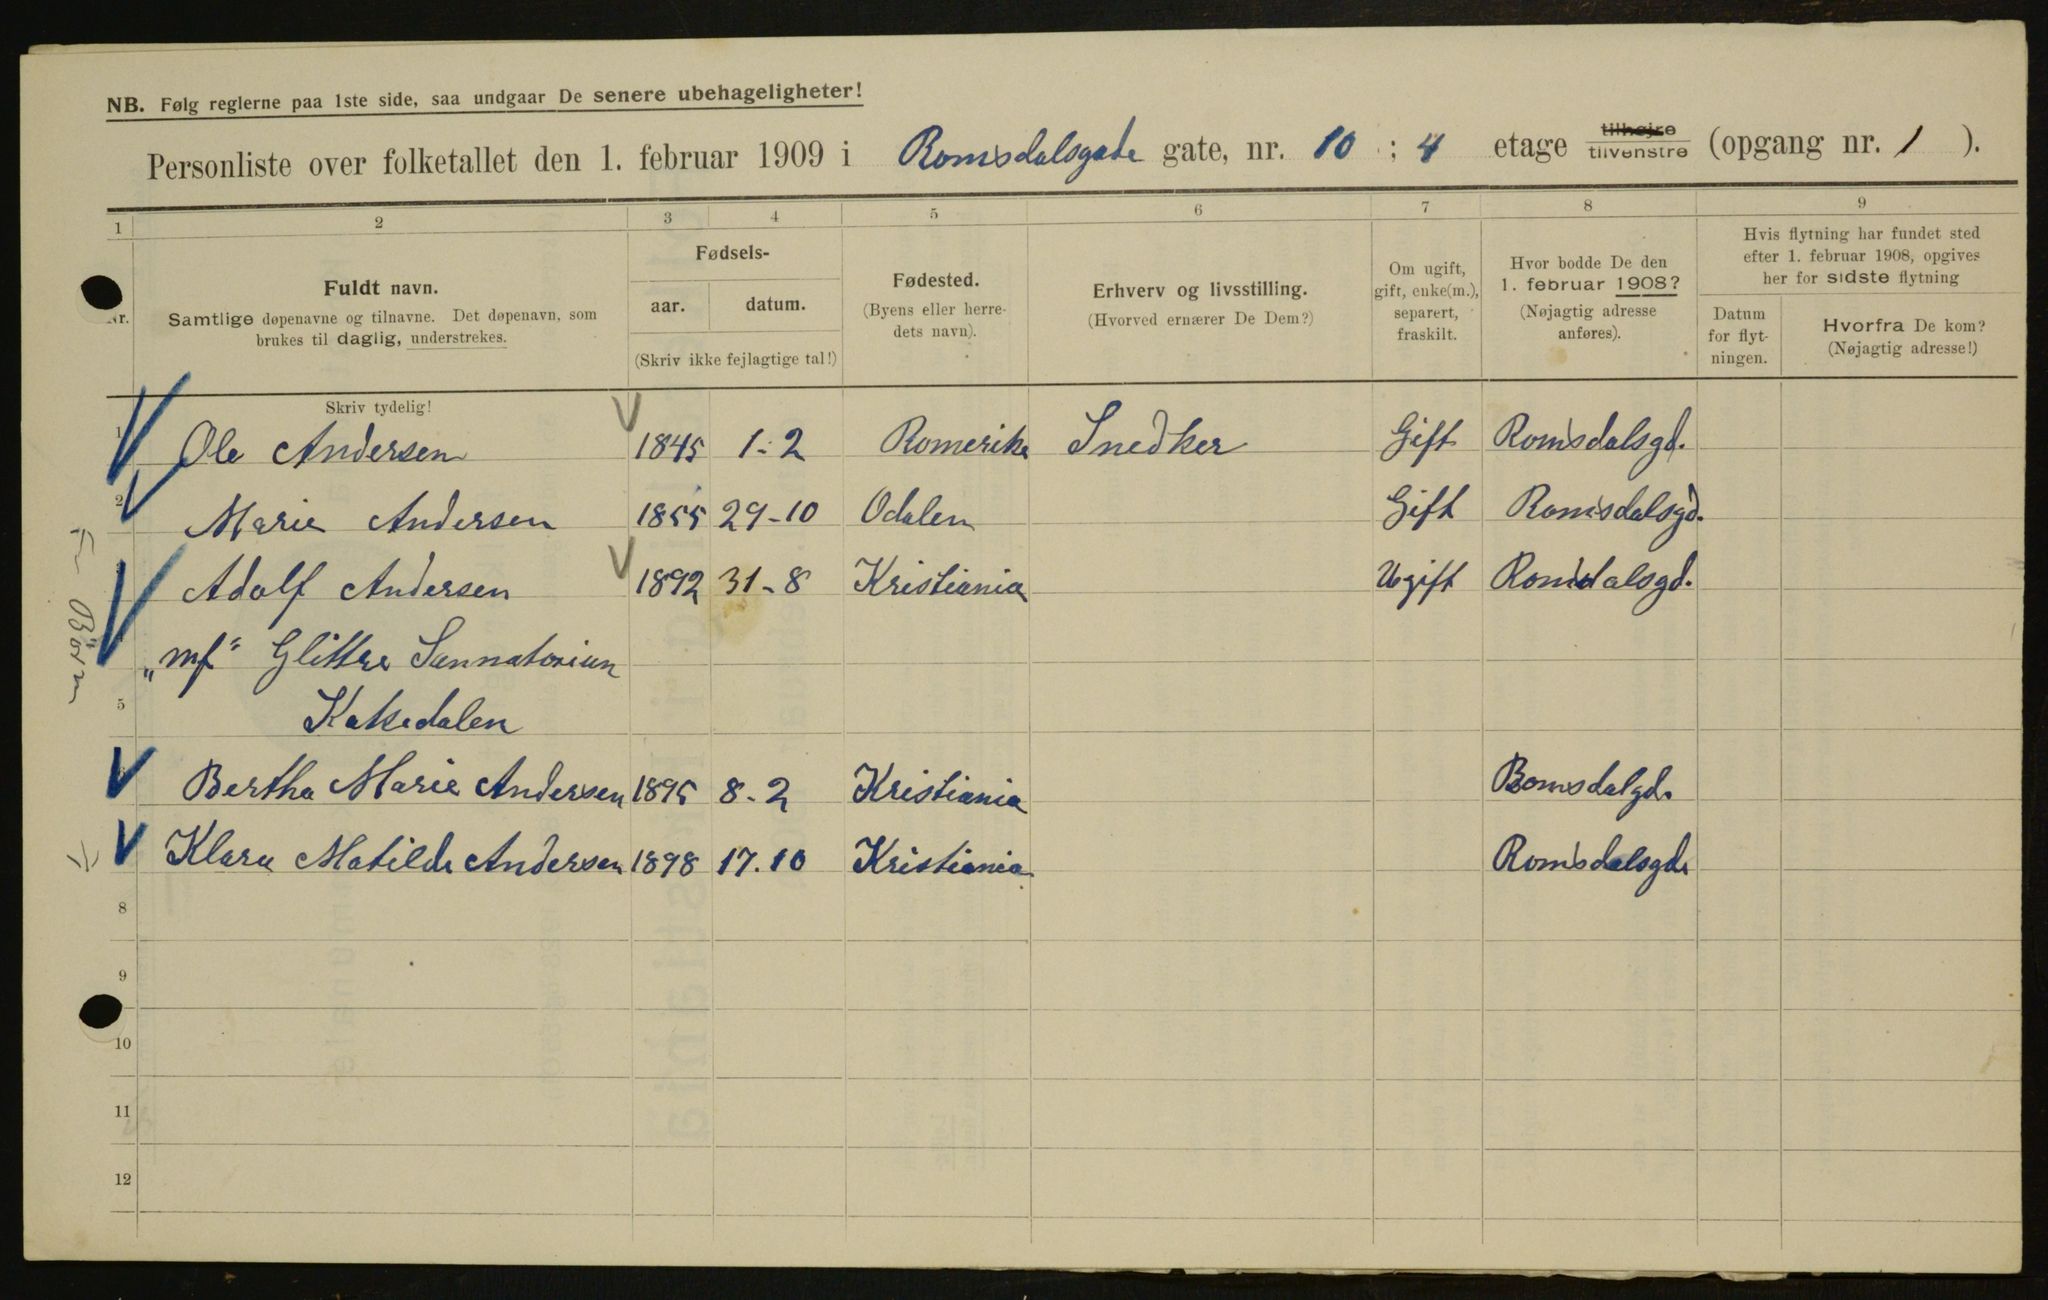 NB. Følg reglerne paa 1ste side, saa undgaar De senere ubehageligheter!
Personliste over folketallet den 1. februar 1909 i Romsdalsgade gate, nr. 10 ; 4 etage tilhøjre tilvenstre (opgang nr. 1 ).
1 2 3 4 5 6 7 8 9
Nr.
Fuldt navn.
Samtlige døpenavne og tilnavne. Det døpenavn, som
brukes til daglig, understrekes.
Skriv tydelig!
Fødsels-
aar. datum.
(Skriv ikke fejlagtige tal!)
Fødested.
(Byens eller herre-
dets navn).
Erhverv og livsstilling.
(Hvorved ernærer De Dem?)
Om ugift,
gift, enke(m.),
separert,
fraskilt.
Hvor bodde De den
1. februar 1908?
(Nøjagtig adresse
anføres).
Hvis flytning har fundet sted
efter 1. februar 1908, opgives
her for sidste flytning
Datum
for flyt-
ningen.
Hvorfra De kom?
(Nøjagtig adresse!)
1 Ole Andersen 1845 1-2 Romerike Snedker Gift Romsdalsgd.
2 Marie Andersen 1855 29-10 Odalen Gift Romsdalsgd.
Adolf Andersen 1892 31-8 Kristiania Ugift Romsdalsgd.
„mf“ Glittre Sannatorium
5 Hakedalen
Bertha Marie Andersen 1895 8-2 Kristiania Romsdalgd.
Klara Matilde Andersen 1898 17.10 Kristiania Romsdalsgd.
8
9
10
11
12
Børn